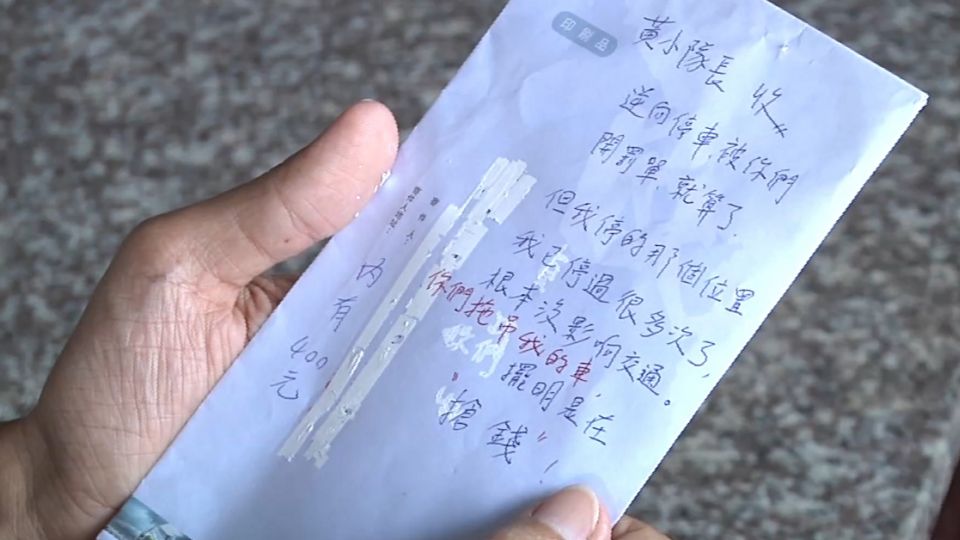 印刷品
黃小隊長 收
逆向停車,被你們
開罰單就算了.
但我停的那個位置
我已停過很多次了,
根本沒影響交通。
你們拖吊我的車,
擺明是在
"搶錢"!
內有
400
元
寄件人: